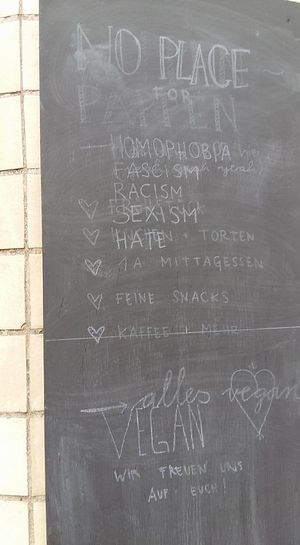 NO PLACE
FOR
PAPPEN
HOMOPHOBIA
FASCISM
RACISM
SEXISM
♡ KUCHEN + TORTEN
HATE
♡ 1A MITTAGESSEN
♡ FEINE SNACKS
♡ KAFFEE + MEHR
→ alles vegan
VEGAN
WIR FREUEN UNS
AUF EUCH!